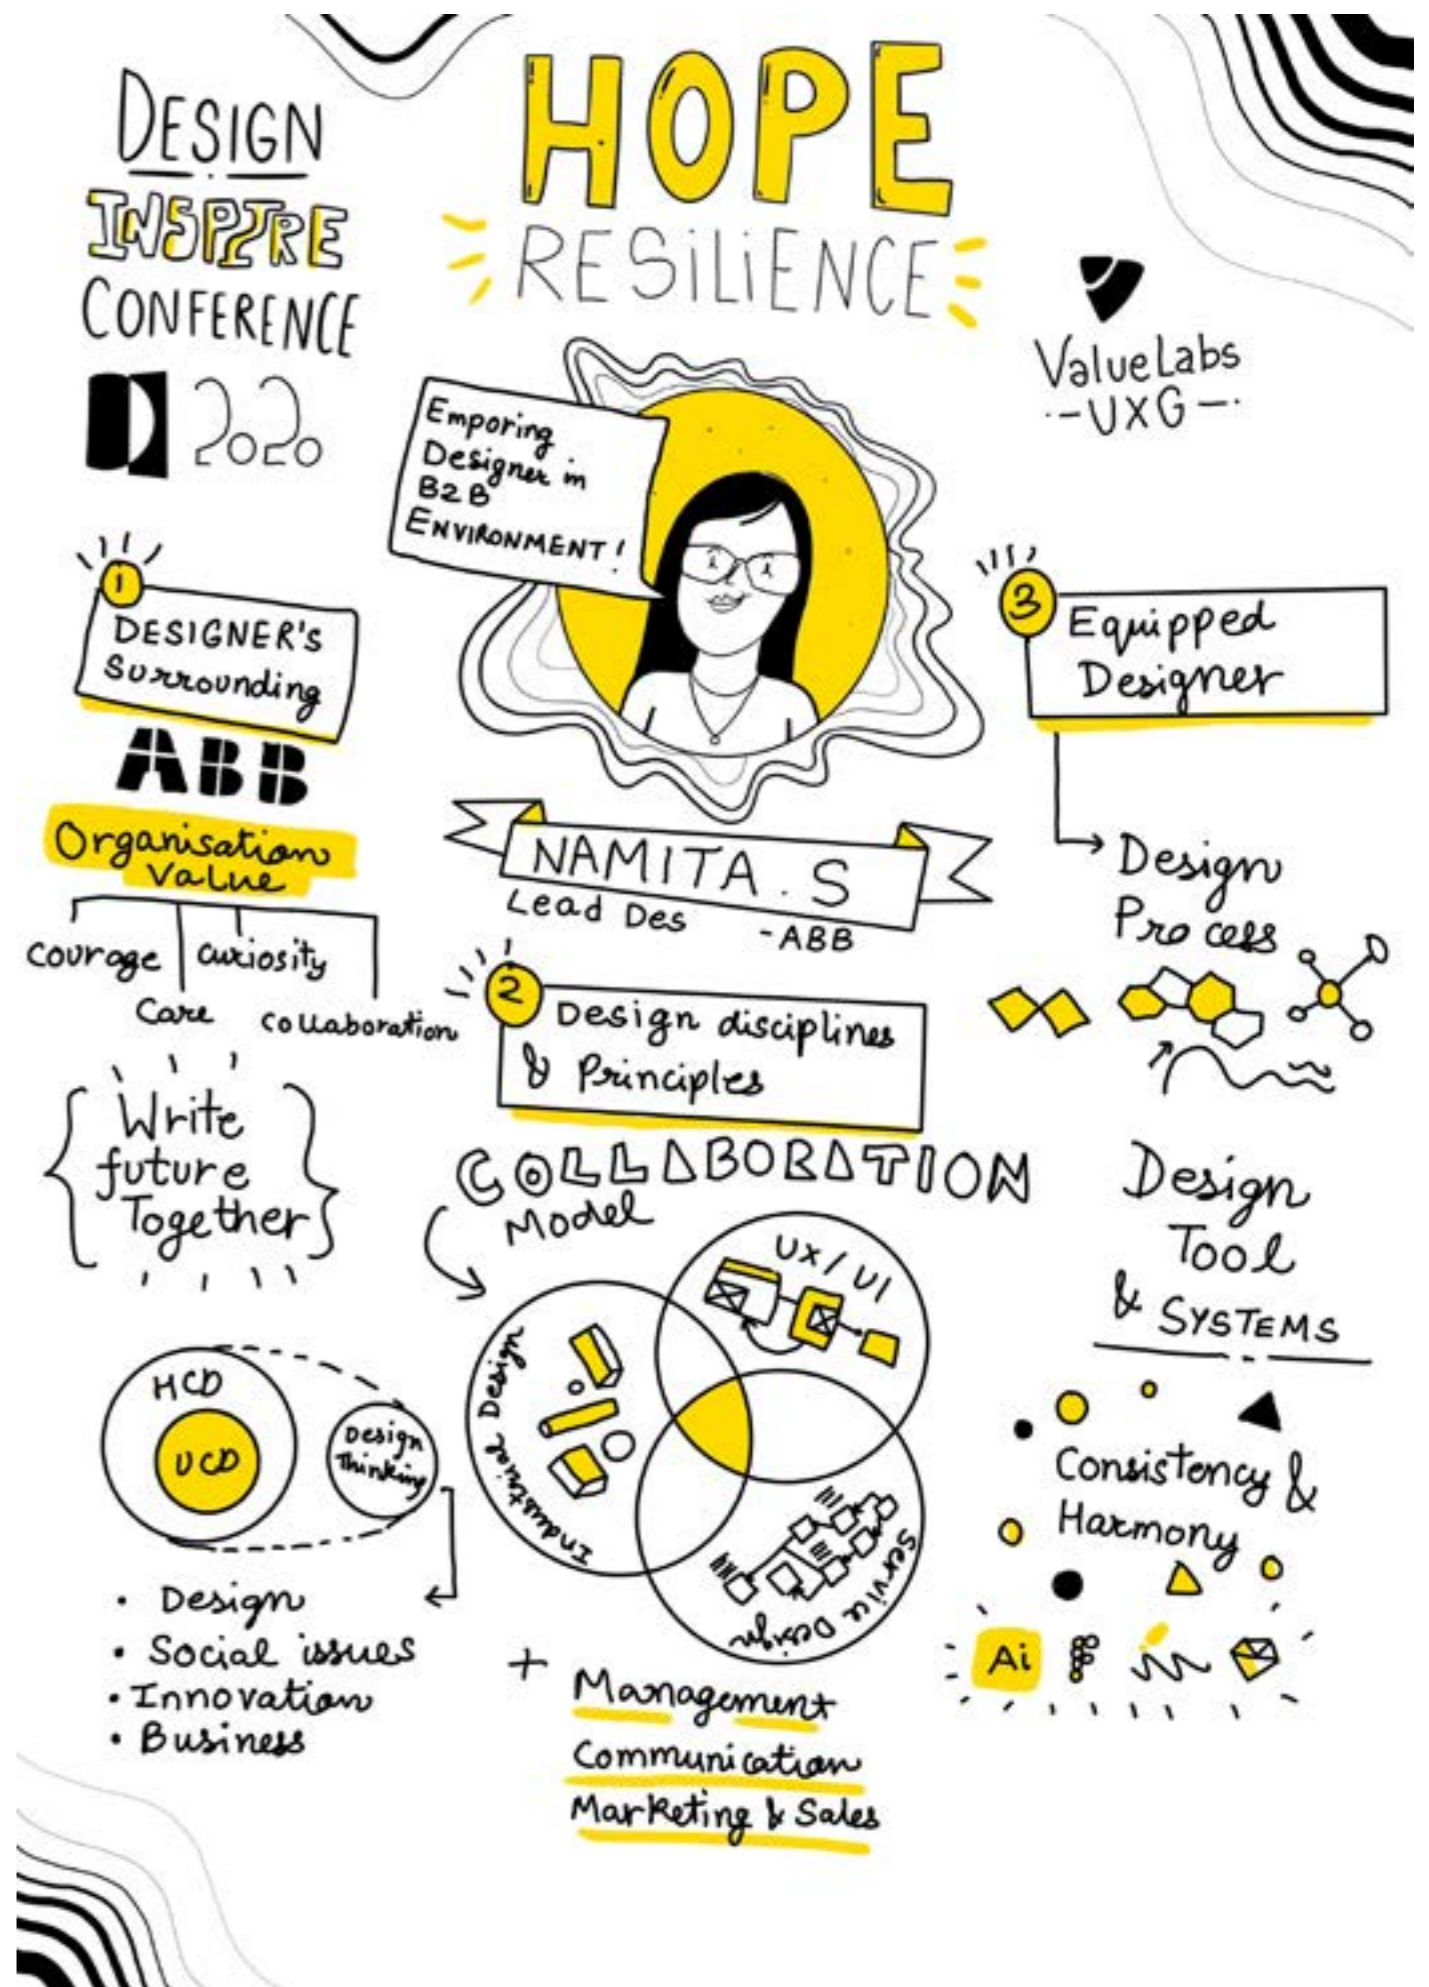 DESIGN
INSPIRE
CONFERENCE
2020
HOPE
RESiLiENCE
ValueLabs
-UXG-
Emporing
Designer in
B2B
ENVIRONMENT!
1
DESIGNER'S
Surrounding
ABB
Organisation
Value
Courage
Curiosity
Care
Collaboration
Write
future
Together
HCD
UCD
Design
Thinking
• Design
• Social issues
• Innovation
• Business
NAMITA.S
Lead Des -ABB
2
Design disciplines
& Principles
COLLABORATION
Model
UX/UI
Industrial Design
Service Design
+ Management
Communication
Marketing & Sales
3
Equipped
Designer
Design
Process
Design
Tool
& SYSTEMS
Consistency &
Harmony
Ai